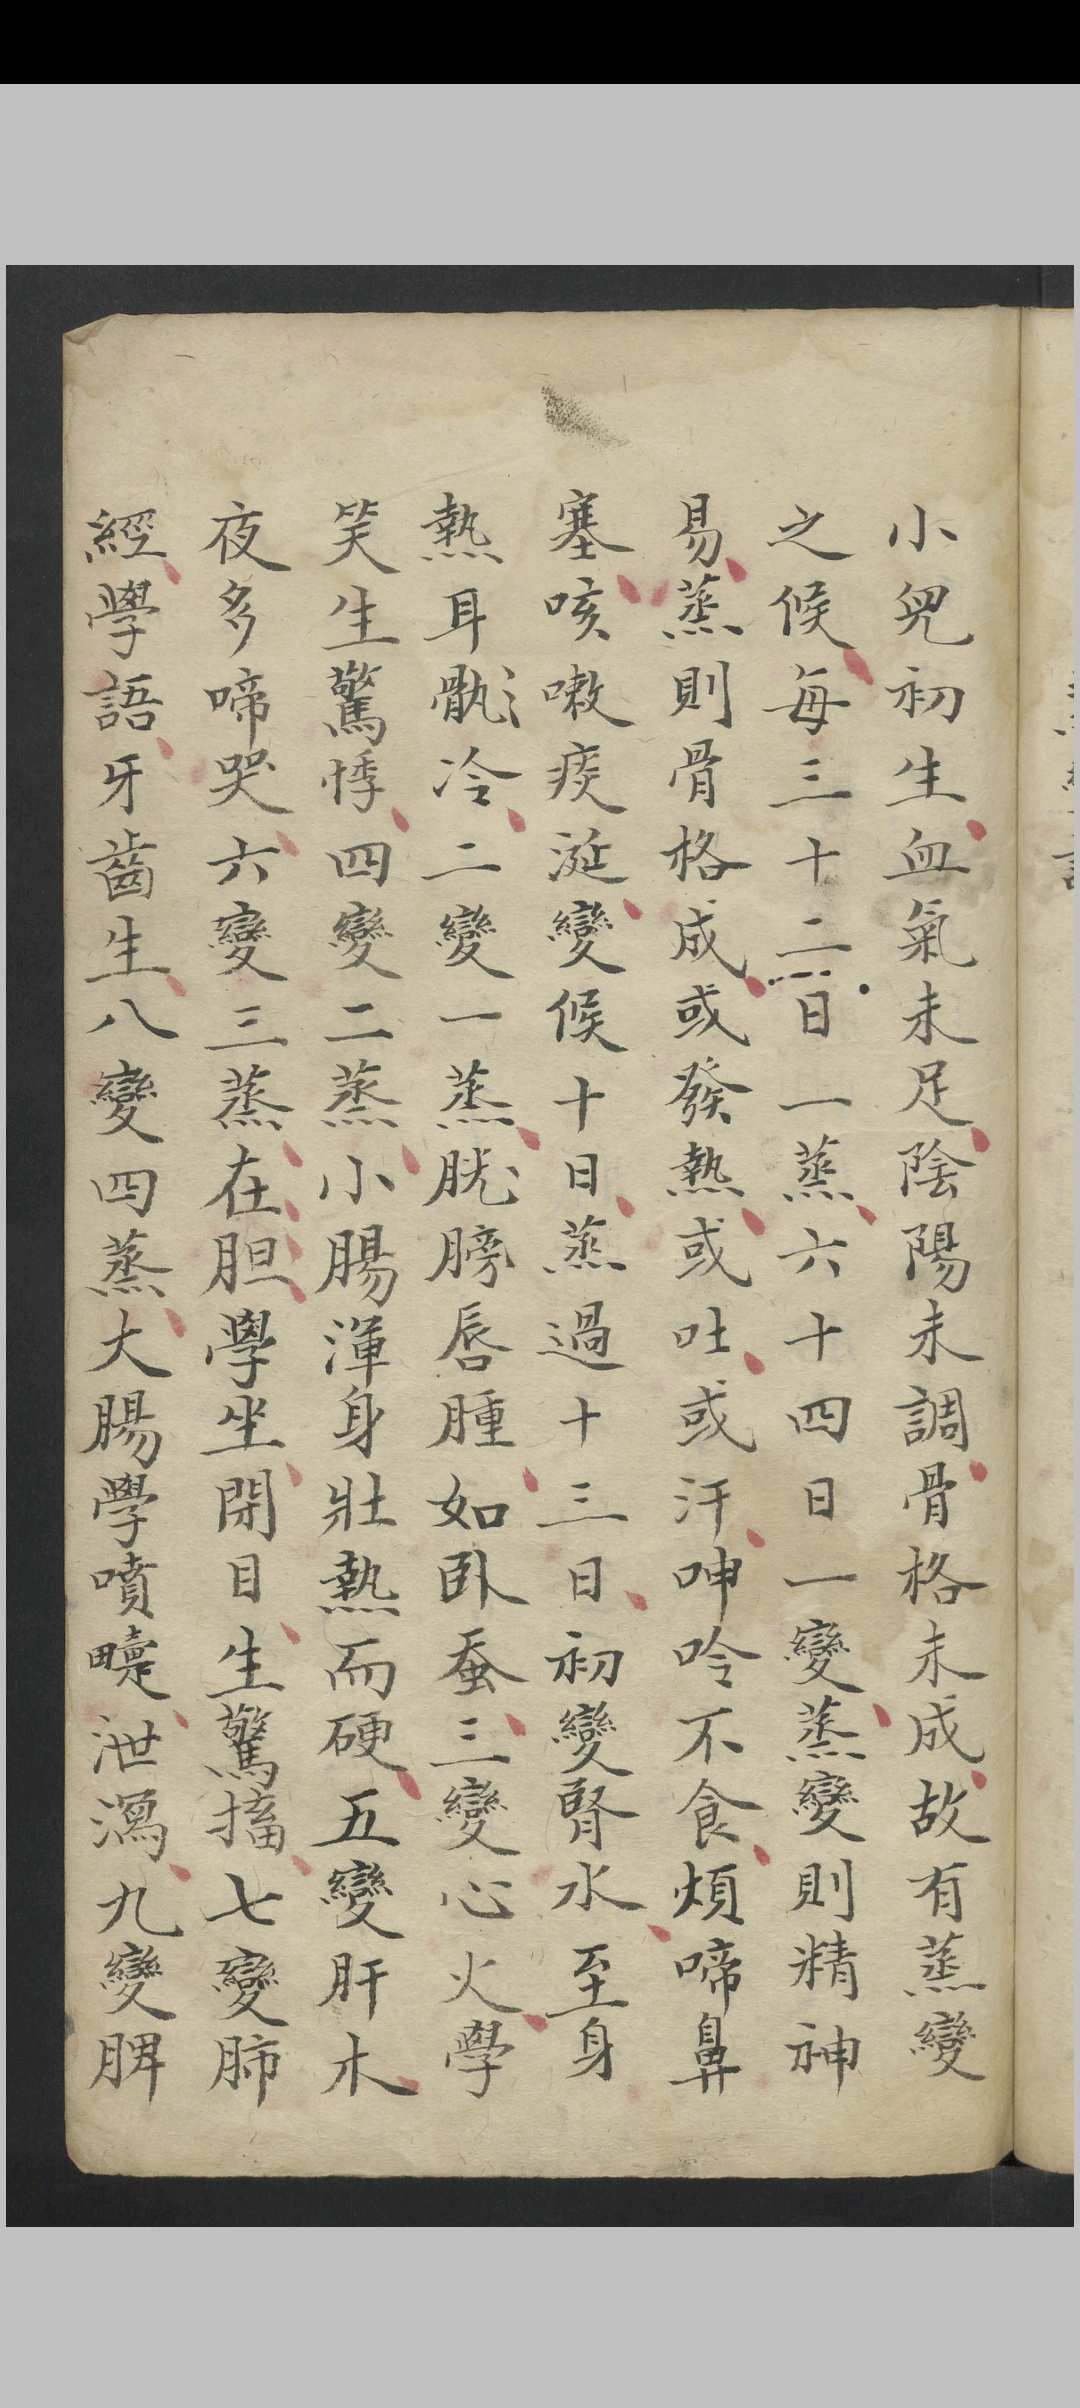 小兒初生血氣未足陰陽未調骨格未成故有蒸變
之候每三十二日一蒸六十四日一變蒸變則精神
易蒸則骨格成或發熱或吐或汗呻吟不食煩啼鼻
塞咳嗽痰涎變候十日蒸過十三日初變腎水至身
熱耳骩冷二變一蒸胱膀唇腫如臥蚕三變心火學
笑生驚悸四變二蒸小腸渾身壯熱而硬五變肝木
夜多啼哭六變三蒸在胆學坐閉目生驚搐七變肺
經學語牙齒生八變四蒸大腸學噴嚔泄瀉九變脾